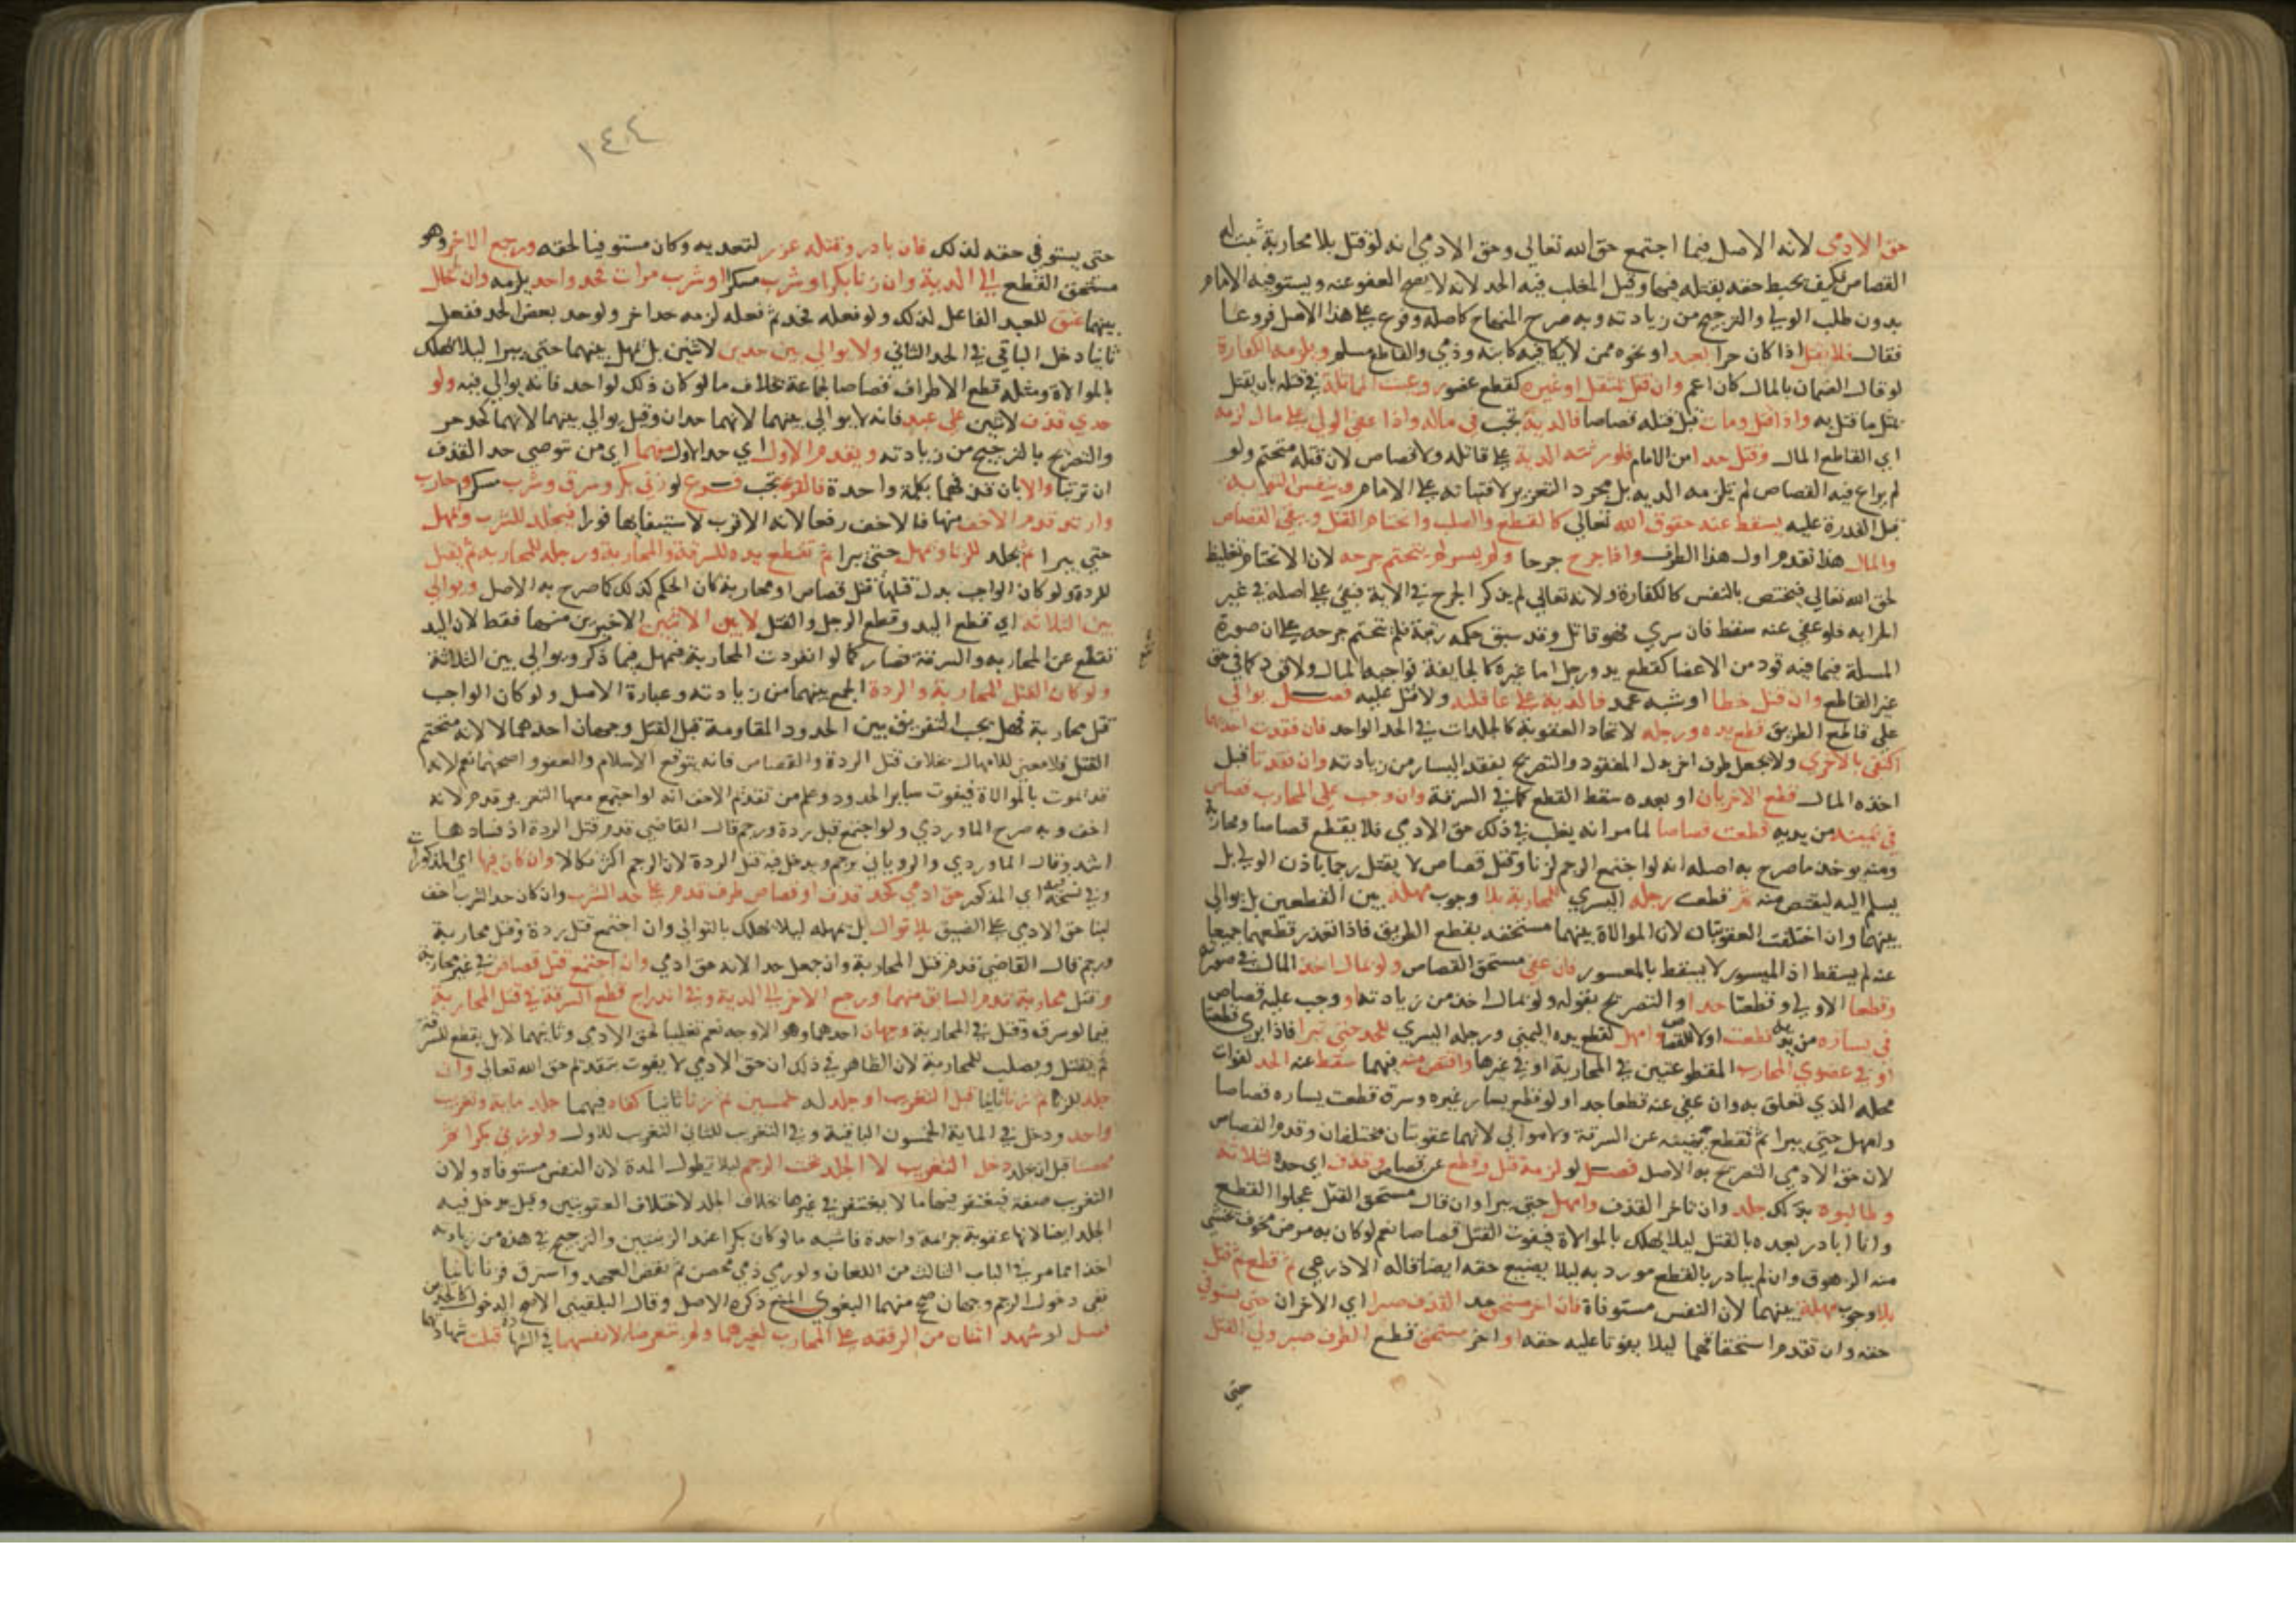 حق الادمى لانه الاصل فيما اجتمع حق الله تعالي وحق الادمي انه لو قتل بلا محاربة ثبت له
القصاص فكيف يحبط حقه بقتله فيها وقيل المغلب فيه الحد لانه لا يصح العفو عنه ويستوفيه الامام
بدون طلب الولي والترجيح من زيادته وبه صرح المنهاج كاصله وفرع على هذا الاصل فروعا
فقال فلا يقتل اذا كان حرا بعبد او نحوه ممن لا يكافيه كابنه وذمي والقاطع مسلم ويلزمه الكفارة
لو قال الضمان بالمال كان اعم وان قتل بمثقل او غيره كقطع عضو روعيت المماثلة في قتله بان يقتل
بمثل ما قتل به واذا قتل ومات قبل قتله قصاصا فالدية تجب في ماله واذا عفى الولي على مال لزمه
اي القاطع المال وقتل حدا من الامام فلورثته الدية على قاتله ولا قصاص لان قتله متحتم ولو
لم يراع فيه القصاص لم تلزمه الدية بل مجرد التعزير لافتياته على الامام وبنفس التوبة
قبل القدرة عليه يسقط عنه حقوق الله تعالي كالقطع والصلب وانحتام القتل وبقي القصاص
والمال هذا تقدم اول هذا الطرف واذا جرح جرحا ولم يسر لم يتحتم جرحه لان الانحتام تغليظ
لحق الله تعالي فيختص بالنفس كالكفارة ولانه تعالى لم يذكر الجرح في الاية فبقي على اصله في غير
الحرابه فلو عفي عنه سقط فان سري فهو قاتل وقد سبق حكمه فلم يتحتم جرحه على ان صورة
المسلة فيما فيه قود من الاعضا كقطع يد ورجل اما غيره كالجايفة فواجبه المال ولا قود كما في حق
غير القاطع وان قتل خطا او شبه عمد فالدية على عاقلته ولا قتل عليه فصل يوالي
على قاطع الطريق قطع يده ورجله لاتحاد العقوبة كالجلدات في الحد الواحد فان فقدت احداهما
اكتفي بالاخرى ولا يجعل طرف اخر بدل المفقود والتصريح بفقد اليسار من زيادته وان فقدتا قبل
اخذه المال قطع الاخريان او بعده سقط القطع كما في السرقة وان وجب على المحارب قصاص
في يمينه من يديه قطعت قصاصا لما مر انه يغلب في ذلك حق الادمي فلا يقطع قصاصا ومحاربة
ومنه يوخذ ما صرح به اصله انه لو اجتمع الرجم لزنا وقتل قصاص لا يقتل رجما باذن الولي بل
يسلم اليه ليقتص منه ثم قطعت رجله اليسري للمحاربة بلا وجوب مهلة بين القطعين بل يوالي
بينهما وان اختلفت العقوبتان لان الموالاة بينهما مستحقه بقطع الطريق فاذا تعذر قطعهما جميعا
عنه لم يسقط اذ الميسور لا يسقط بالمعسور فان عفي مستحق القصاص ولو بمال اخذ المال في صورته
وقطعا الاولي وقطعتا حدا والتصريح بقوله ولو بمال اخذ من زيادته او وجب عليه قصاص
في يساره من يديه قطعت اولا للقصاص وامهل لقطع يده اليمني ورجله اليسري للحد حتى تبرا فاذا ابري قطعتا
او في عضوي المحارب المقطوعتين في المحاربة او في غيرها واقتص منه فيهما سقط عنه الحد لفوات
محله الذي تعلق به وان عفي عنه قطعا حدا ولو قطع يسار غيره وسرق قطعت يساره قصاصا
وامهل حتى يبرا ثم تقطع يمينه عن السرقة ولا يوالي لانهما عقوبتان مختلفتان وقدم القصاص
لان حق الادمي التصريح به الاصل فصل لو لزمه قتل وقطع عن قصاص وقذف اي حده لثلاثة
وطالبوه بذلك جلد وان تاخر القذف وامهل حتى يبرا وان قال مستحق القتل عجلوا القطع
وانا ابادر بعده بالقتل ليلا يهلك بالموالاة فيفوت القتل قصاصا نعم لو كان به مرض مخوف يخشى
منه الزهوق وان لم يبادر بالقطع مورد به ليلا يضيع حقه ايضا قاله الاذرعي ثم قطع ثم قتل
بلا وجوب مهلة بينهما لان النفس مستوفاة فان اخر مستحق حد القذف صبرا اي الاخران حتى يستوفي
حقه وان تقدم استحقاقهما ليلا يفوتا عليه حقه او اخر مستحق قطع الطرف صبر ولي القتل
حتى
١٤٤
حتى يستوفي حقه لذلك فان بادر وقتله عزر لتعديه وكان مستوفيا لحقه ورجع الاخر وهو
مستحق القطع الي الدية وان زنا بكرا او شرب مسكرا او شرب مرات فحد واحد يلزمه وان تخلل
بينهما عتق للعبد الفاعل لذلك ولو فعله فحد ثم فعله لزمه حد اخر ولو حد بعض الحد ففعل
ثانيا دخل الباقي في الحد الثاني ولا يوالي بين حدين لاثنين بل يمهل بينهما حتى يبرا ليلا يهلك
بالموالاة ومثله قطع الاطراف قصاصا لجماعة بخلاف ما لو كان ذلك لواحد فانه يوالي فيه ولو
حدي قذف لاثنين على عبد فانه لا يوالي بينهما لانهما حدان وقيل يوالي بينهما لانهما كحد حر
والتصريح بالترجيح من زيادته ويقدم الاول اي حد الاول منهما اي من توصي حد القذف
ان ترتبا والا بان قذفهما بكلمة واحدة فالقرعة تجب فرع لو زنى بكر وسرق وشرب مسكرا وحارب
وارتد قدم الاخف منها فالاخف رفعا لانه الاقرب لاستيفايها فورا فيجلد للشرب ويمهل
حتي يبرا ثم يجلد للزنا ويمهل حتى يبرا ثم تقطع يده للسرقة والمحاربة ورجله للمحاربة ثم يقتل
للردة ولو كان الواجب بدل قتلها قتل قصاص او محاربة كان الحكم كذلك كما صرح به الاصل ويوالي
بين الثلاثه اي قطع اليد وقطع الرجل والقتل لا بين الاثنين الاخيرين منهما فقط لان اليد
تقطع عن المحاربه والسرقة فصار كما لو انفردت المحاربة فيمهل فيما ذكر ويوالي بين الثلاثة
ولو كان القتل للمحاربة والردة الجمع بينهما من زيادته وعبارة الاصل ولو كان الواجب
قتل محاربة فهل يجب التفريق بين الحدود المقاومة قبل القتل وجهان احدهما لا لانه متحتم
القتل فلا معنى للامهال بخلاف قتل الردة والقصاص فانه يتوقع الاسلام والعفو واصحهما نعم لانه
قد يموت بالموالاة فيفوت ساير الحدود وعلم من تقديم الاخف انه لو اجتمع معها التعزير قدم لانه
اخف وبه صرح الماوردي ولو اجتمع قتل ردة ورجم قال القاضي قدم قتل الردة اذ فسادها
اشد وقال الماوردي والروياني يرجم ويدخل فيه قتل الردة لان الرجم اكثر نكالا وان كان فيها اي المذكورات
وفي نسخة فيه اي المذكور حق ادمي كحد قذف او قصاص طرف قدم على حد الشرب وان كان حد الشرب اخف
لبنا حق الادمي على الضيق بلا توال بل يمهله ليلا يهلك بالتوالي وان اجتمع قتل ردة وقتل محاربة
ورجم قال القاضي قدم قتل المحاربة وان جعل حدا لانه حق ادمي وان اجتمع قتل قصاص في غير محاربة
وقتل محاربة قدم السابق منهما ورجع الاخر الي الدية وفي اندراج قطع السرقة في قتل المحاربة
فيما لو سرق وقتل في المحاربة وجهان احدهما وهو الاوجه نعم تغليبا لحق الادمي وثانيهما لا بل يقطع للسرقة
ثم يقتل ويصلب للمحاربة لان الظاهر في ذلك ان حق الادمي لا يفوت بتقديم حق الله تعالى وان
جلد للزنا ثم زنا ثانيا قبل التغريب او جلد له خمسين ثم زنا ثانيا كفاه فيهما جلد ماية وتغريب
واحد ودخل في الماية الخمسون الباقية وفي التغريب للثاني التغريب للاول ولو زنى بكرا ثم
محصنا قبل ان يجلد دخل التغريب لا الجلد تحت الرجم ليلا تطول المدة لان النفس مستوفاه ولان
التغريب صفة فيغتفر فيها ما لا يغتفر في غيرها بخلاف الجلد لاختلاف العقوبتين وقيل يدخل فيه
الجلد ايضا لانها عقوبة جريمة واحدة فاشبه ما لو كان بكرا عند الزنيتين والترجيح في هذه من زيادته
اخذا مما مر في الباب الثالث من اللعان ولو رمي ذمي محصن ثم نقض العهد واسترق فزنا ثانيا
ففي دخول الرجم وجهان صحح منهما البغوي المنع ذكره الاصل وقال البلقيني الاصح الدخول كالحدين
فصل لو شهد اثنان من الرفقة على المحارب لغيرهما ولم يتعرضا لانفسهما في الشهادة قبلت شهادتهما